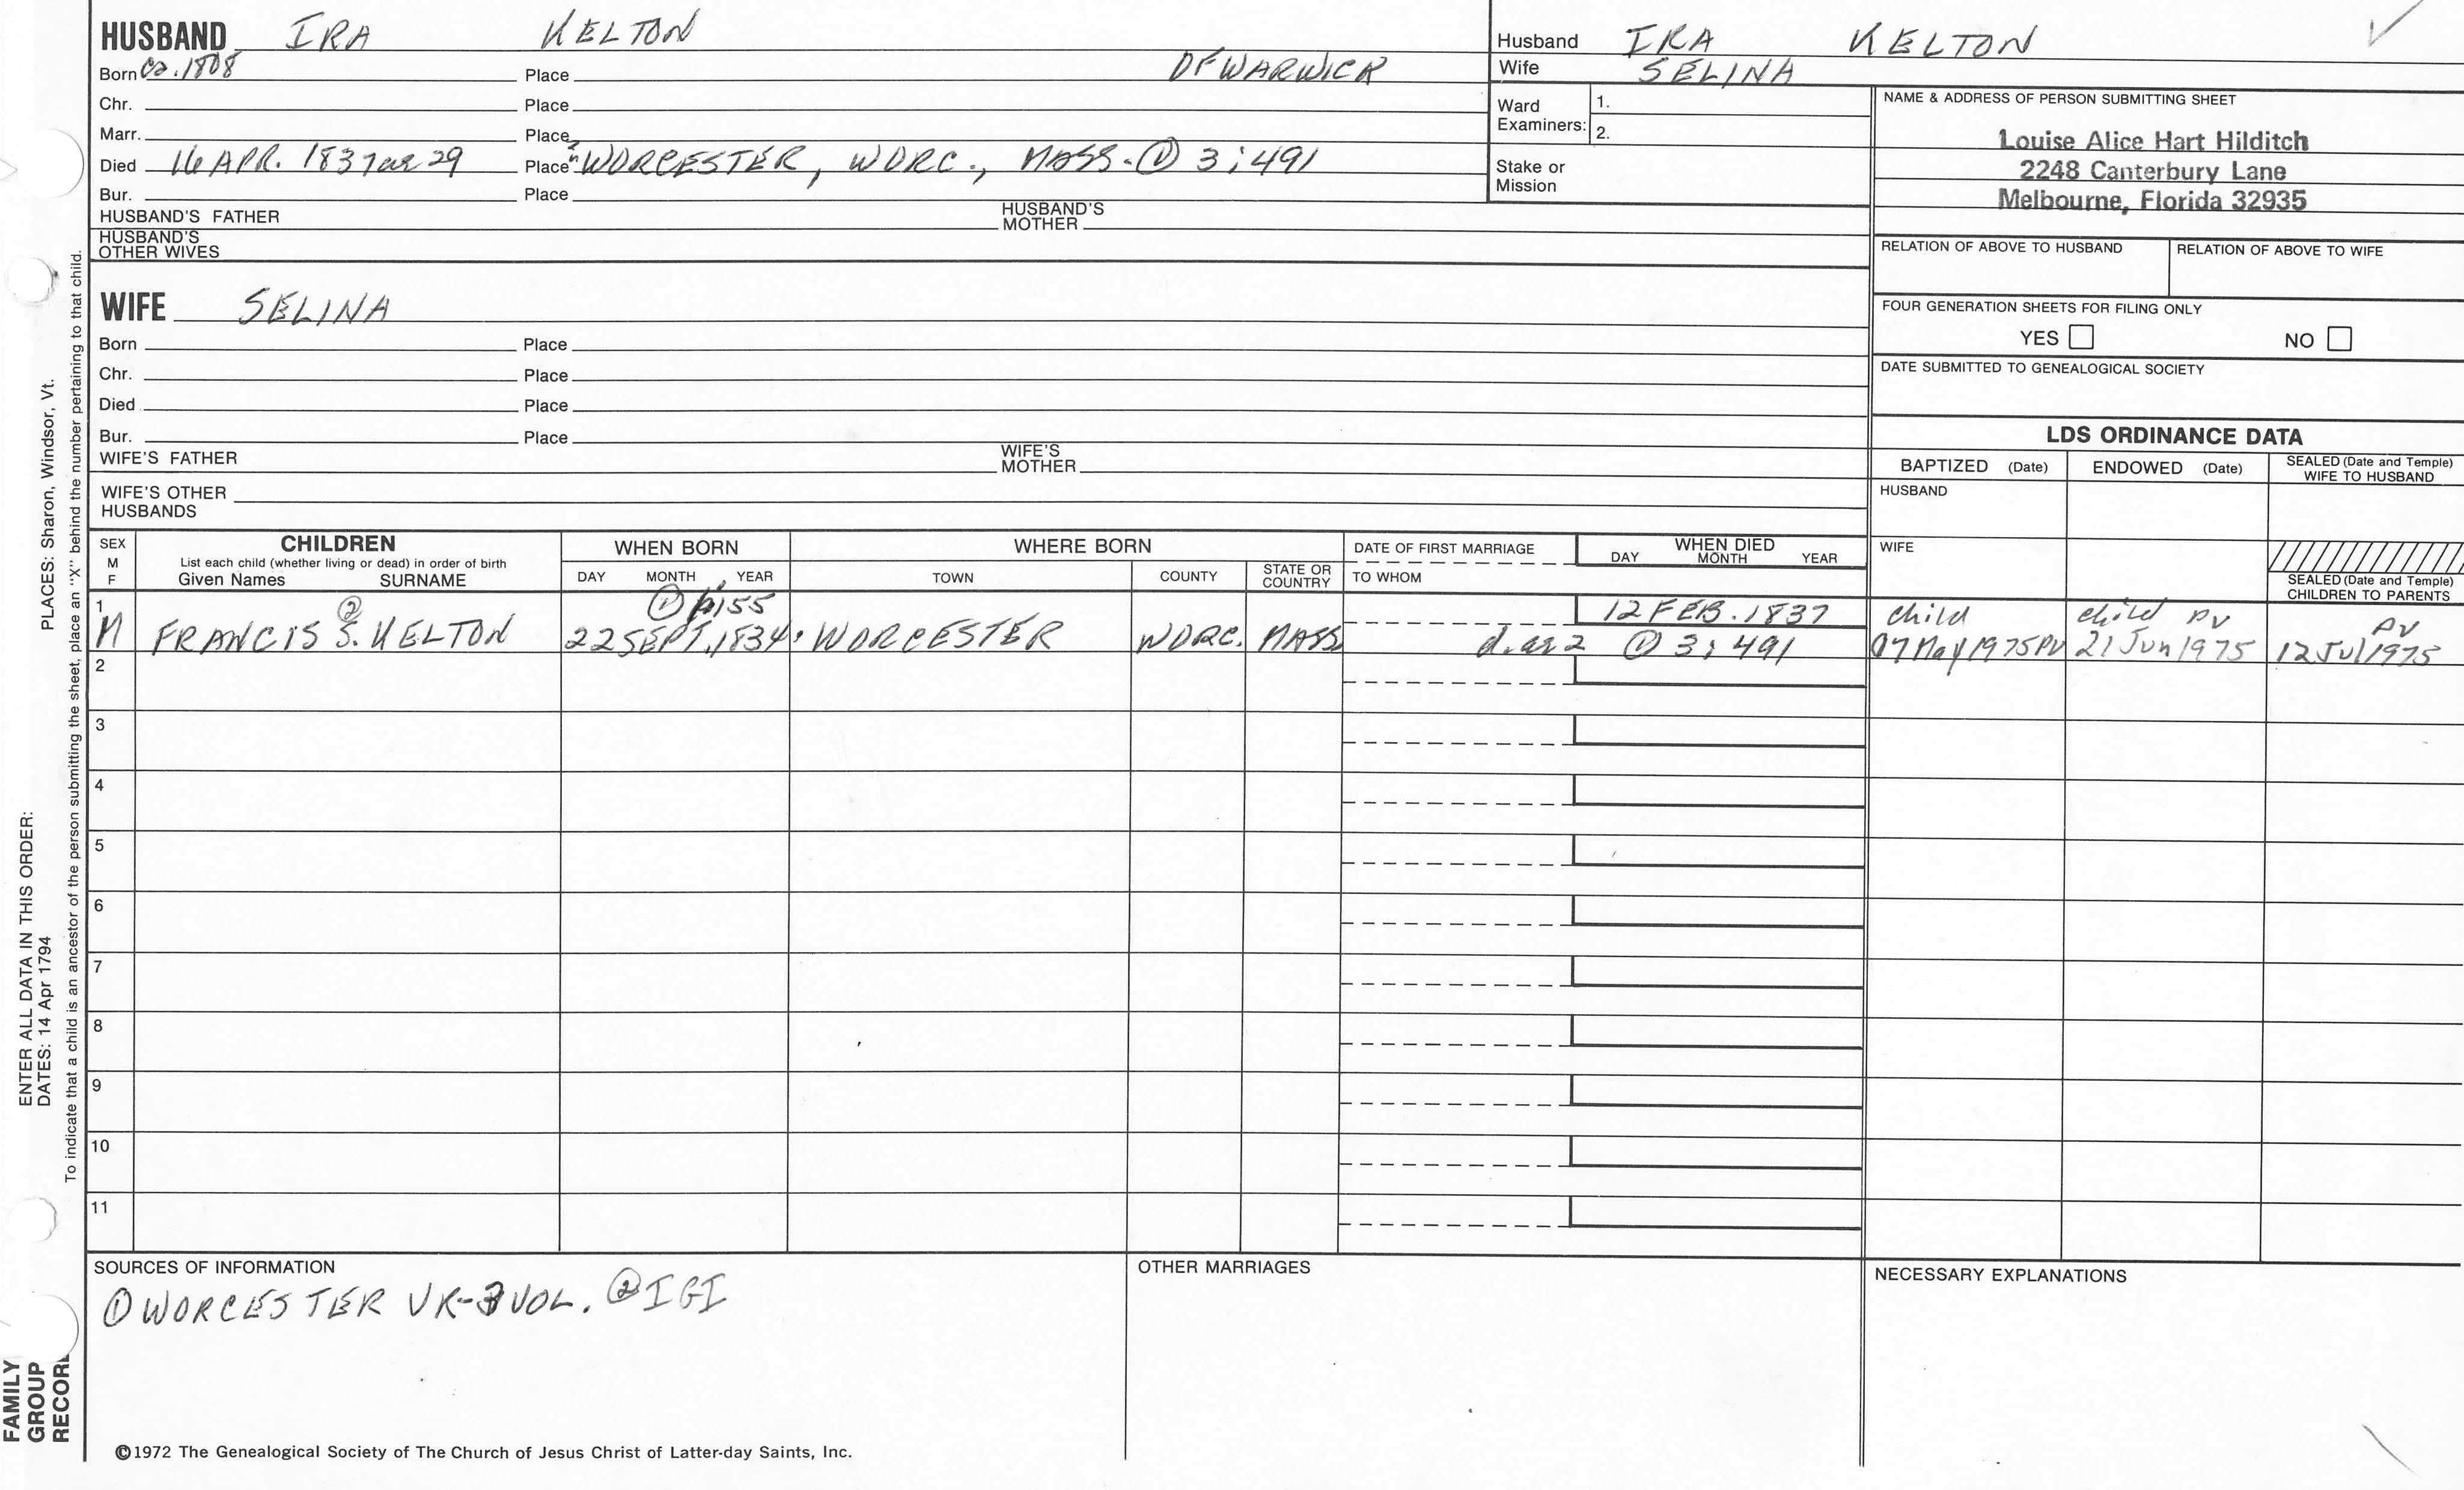 HUSBAND IRA KELTON
Born ca. 1808 Place OF WARWICK
Chr. Place
Marr. Place
Died 16 APR. 1837 ae 29 Place WORCESTER, WORC., MASS. ① 3;491
Bur. Place
HUSBAND'S FATHER HUSBAND'S MOTHER
HUSBAND'S OTHER WIVES
Husband IRA KELTON
Wife SELINA
Ward Examiners: 1.
2.
Stake or Mission
NAME & ADDRESS OF PERSON SUBMITTING SHEET
Louise Alice Hart Hilditch
2248 Canterbury Lane
Melbourne, Florida 32935
RELATION OF ABOVE TO HUSBAND RELATION OF ABOVE TO WIFE
FOUR GENERATION SHEETS FOR FILING ONLY
YES NO
DATE SUBMITTED TO GENEALOGICAL SOCIETY
WIFE SELINA
Born Place
Chr. Place
Died Place
Bur. Place
WIFE'S FATHER WIFE'S MOTHER
WIFE'S OTHER HUSBANDS
LDS ORDINANCE DATA
BAPTIZED (Date) ENDOWED (Date) SEALED (Date and Temple) WIFE TO HUSBAND
HUSBAND
WIFE
SEALED (Date and Temple) CHILDREN TO PARENTS
SEX M F
CHILDREN
List each child (whether living or dead) in order of birth
Given Names SURNAME
WHEN BORN
DAY MONTH YEAR
WHERE BORN
TOWN COUNTY STATE OR COUNTRY
DATE OF FIRST MARRIAGE
TO WHOM
WHEN DIED
DAY MONTH YEAR
1 ② ① 155 12 FEB. 1837 child child PV PV
M FRANCIS S. KELTON 22 SEPT. 1834 WORCESTER WORC. MASS d. ae 2 ① 3; 491 07 May 1975 PV 21 Jun 1975 12 Jul 1975
2
3
4
5
6
7
8
9
10
11
SOURCES OF INFORMATION
① WORCESTER VR-3 VOL. ② IGI
OTHER MARRIAGES
NECESSARY EXPLANATIONS
©1972 The Genealogical Society of The Church of Jesus Christ of Latter-day Saints, Inc.
ENTER ALL DATA IN THIS ORDER:
DATES: 14 Apr 1794 PLACES: Sharon, Windsor, Vt.
To indicate that a child is an ancestor of the person submitting the sheet, place an "X" behind the number pertaining to that child.
FAMILY
GROUP
RECOR